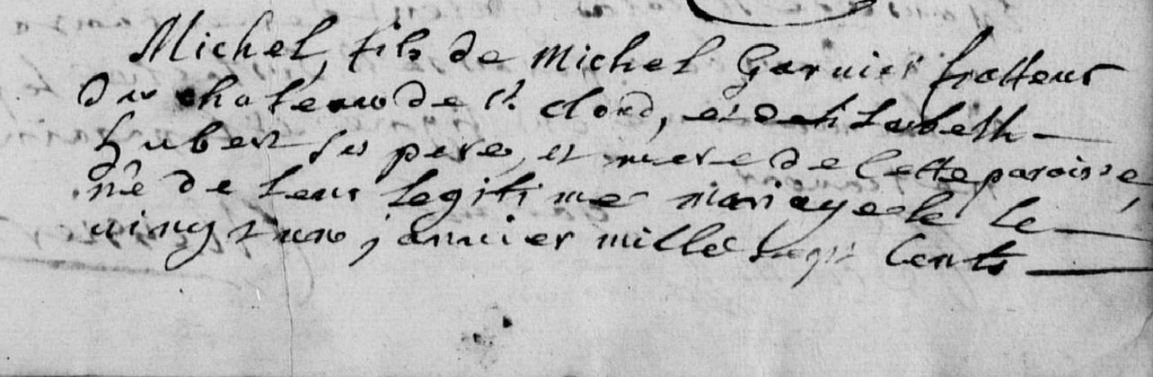 Michel, fils de Michel Garnier frotteur
Du chateau de St cloud, et delisabeth
hubert ses pere, et mere de Cette paroisse,
né de leur legitime mariage le
vingt un janvier mille sept Cents